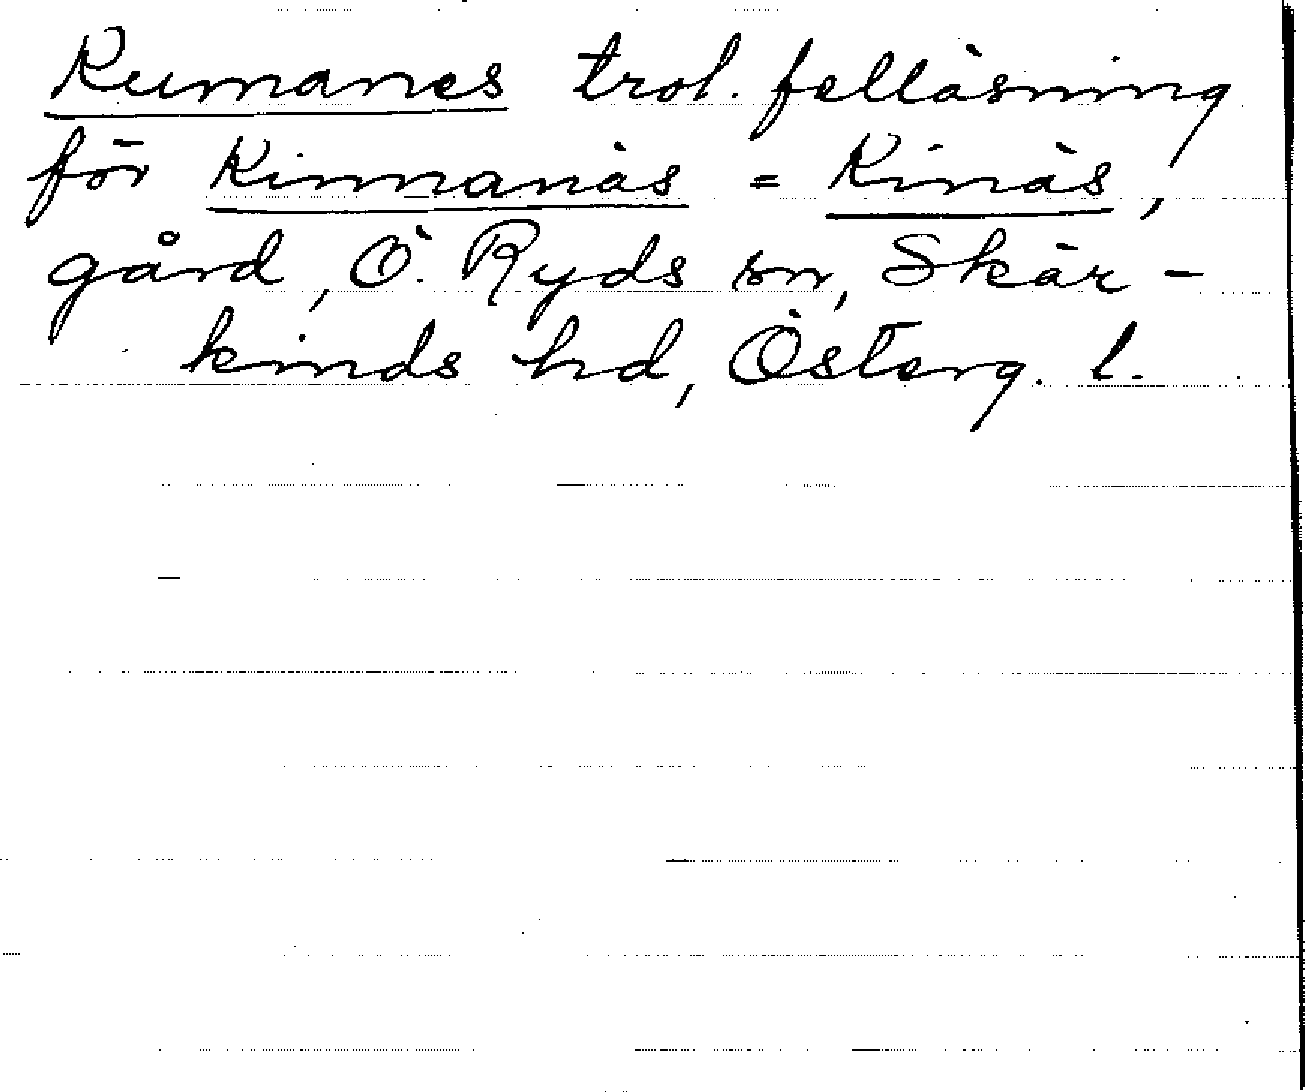 Kumanes trol. felläsning
för Kinnanäs = Kinäs,
gård, Ö. Ryds sn, Skär-
kinds hd, Österg. l.